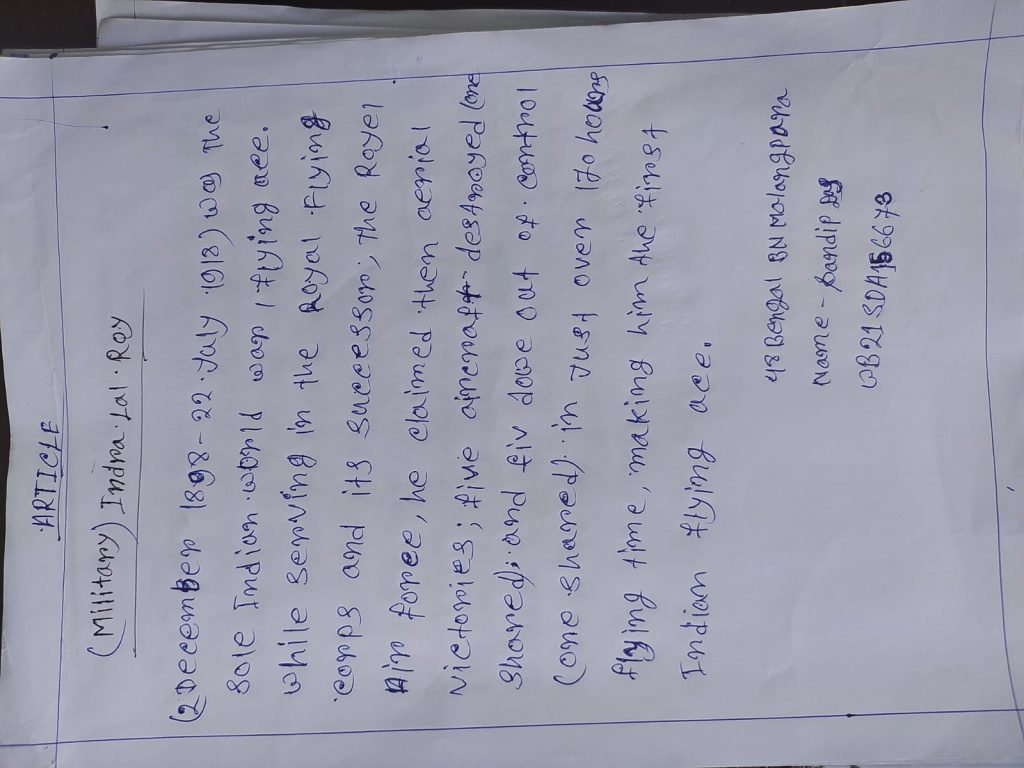 ARTICLE
(Military) Indra.Lal.Roy
(2December 1898-22.July 1918) was the
sole Indian.world war 1 flying ace.
while serving in the Royal.Flying
corps and its successor; the Royel
Air force, he claimed then aerial
victories; fivie aircraft destroyed (one
shared); and fiv dove out of.control
(one shared). in Just over 170 hours
flying time, making him the first
Indian flying ace.
48 Bengal BN Mohanpara
Name - Sandip Das
WB21SDA156673